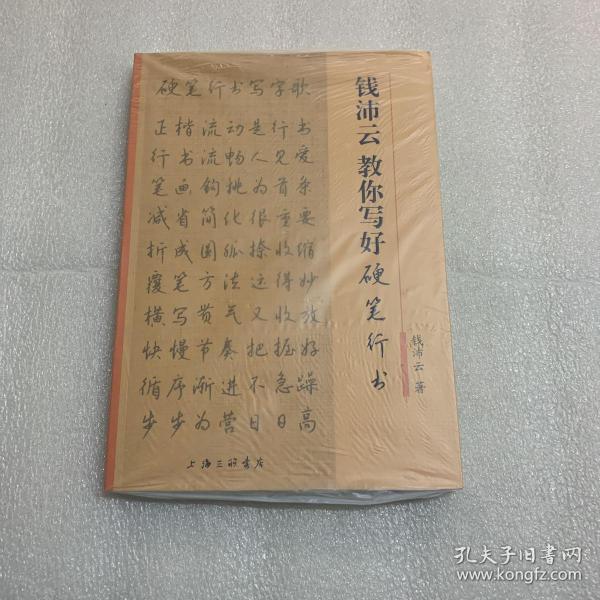 硬笔行书写字歌
正楷流动是行书
行书流畅人见爱
笔画钩挑为首条
减省简化很重要
折成圆弧捺收缩
覆笔方法运得妙
横写贯气又收放
快慢节奏把握好
循序渐进不急躁
步步为营日日高
上海三联书店
钱沛云 教你写好硬笔行书
钱沛云 著
孔夫子旧书网
www.kongfz.com